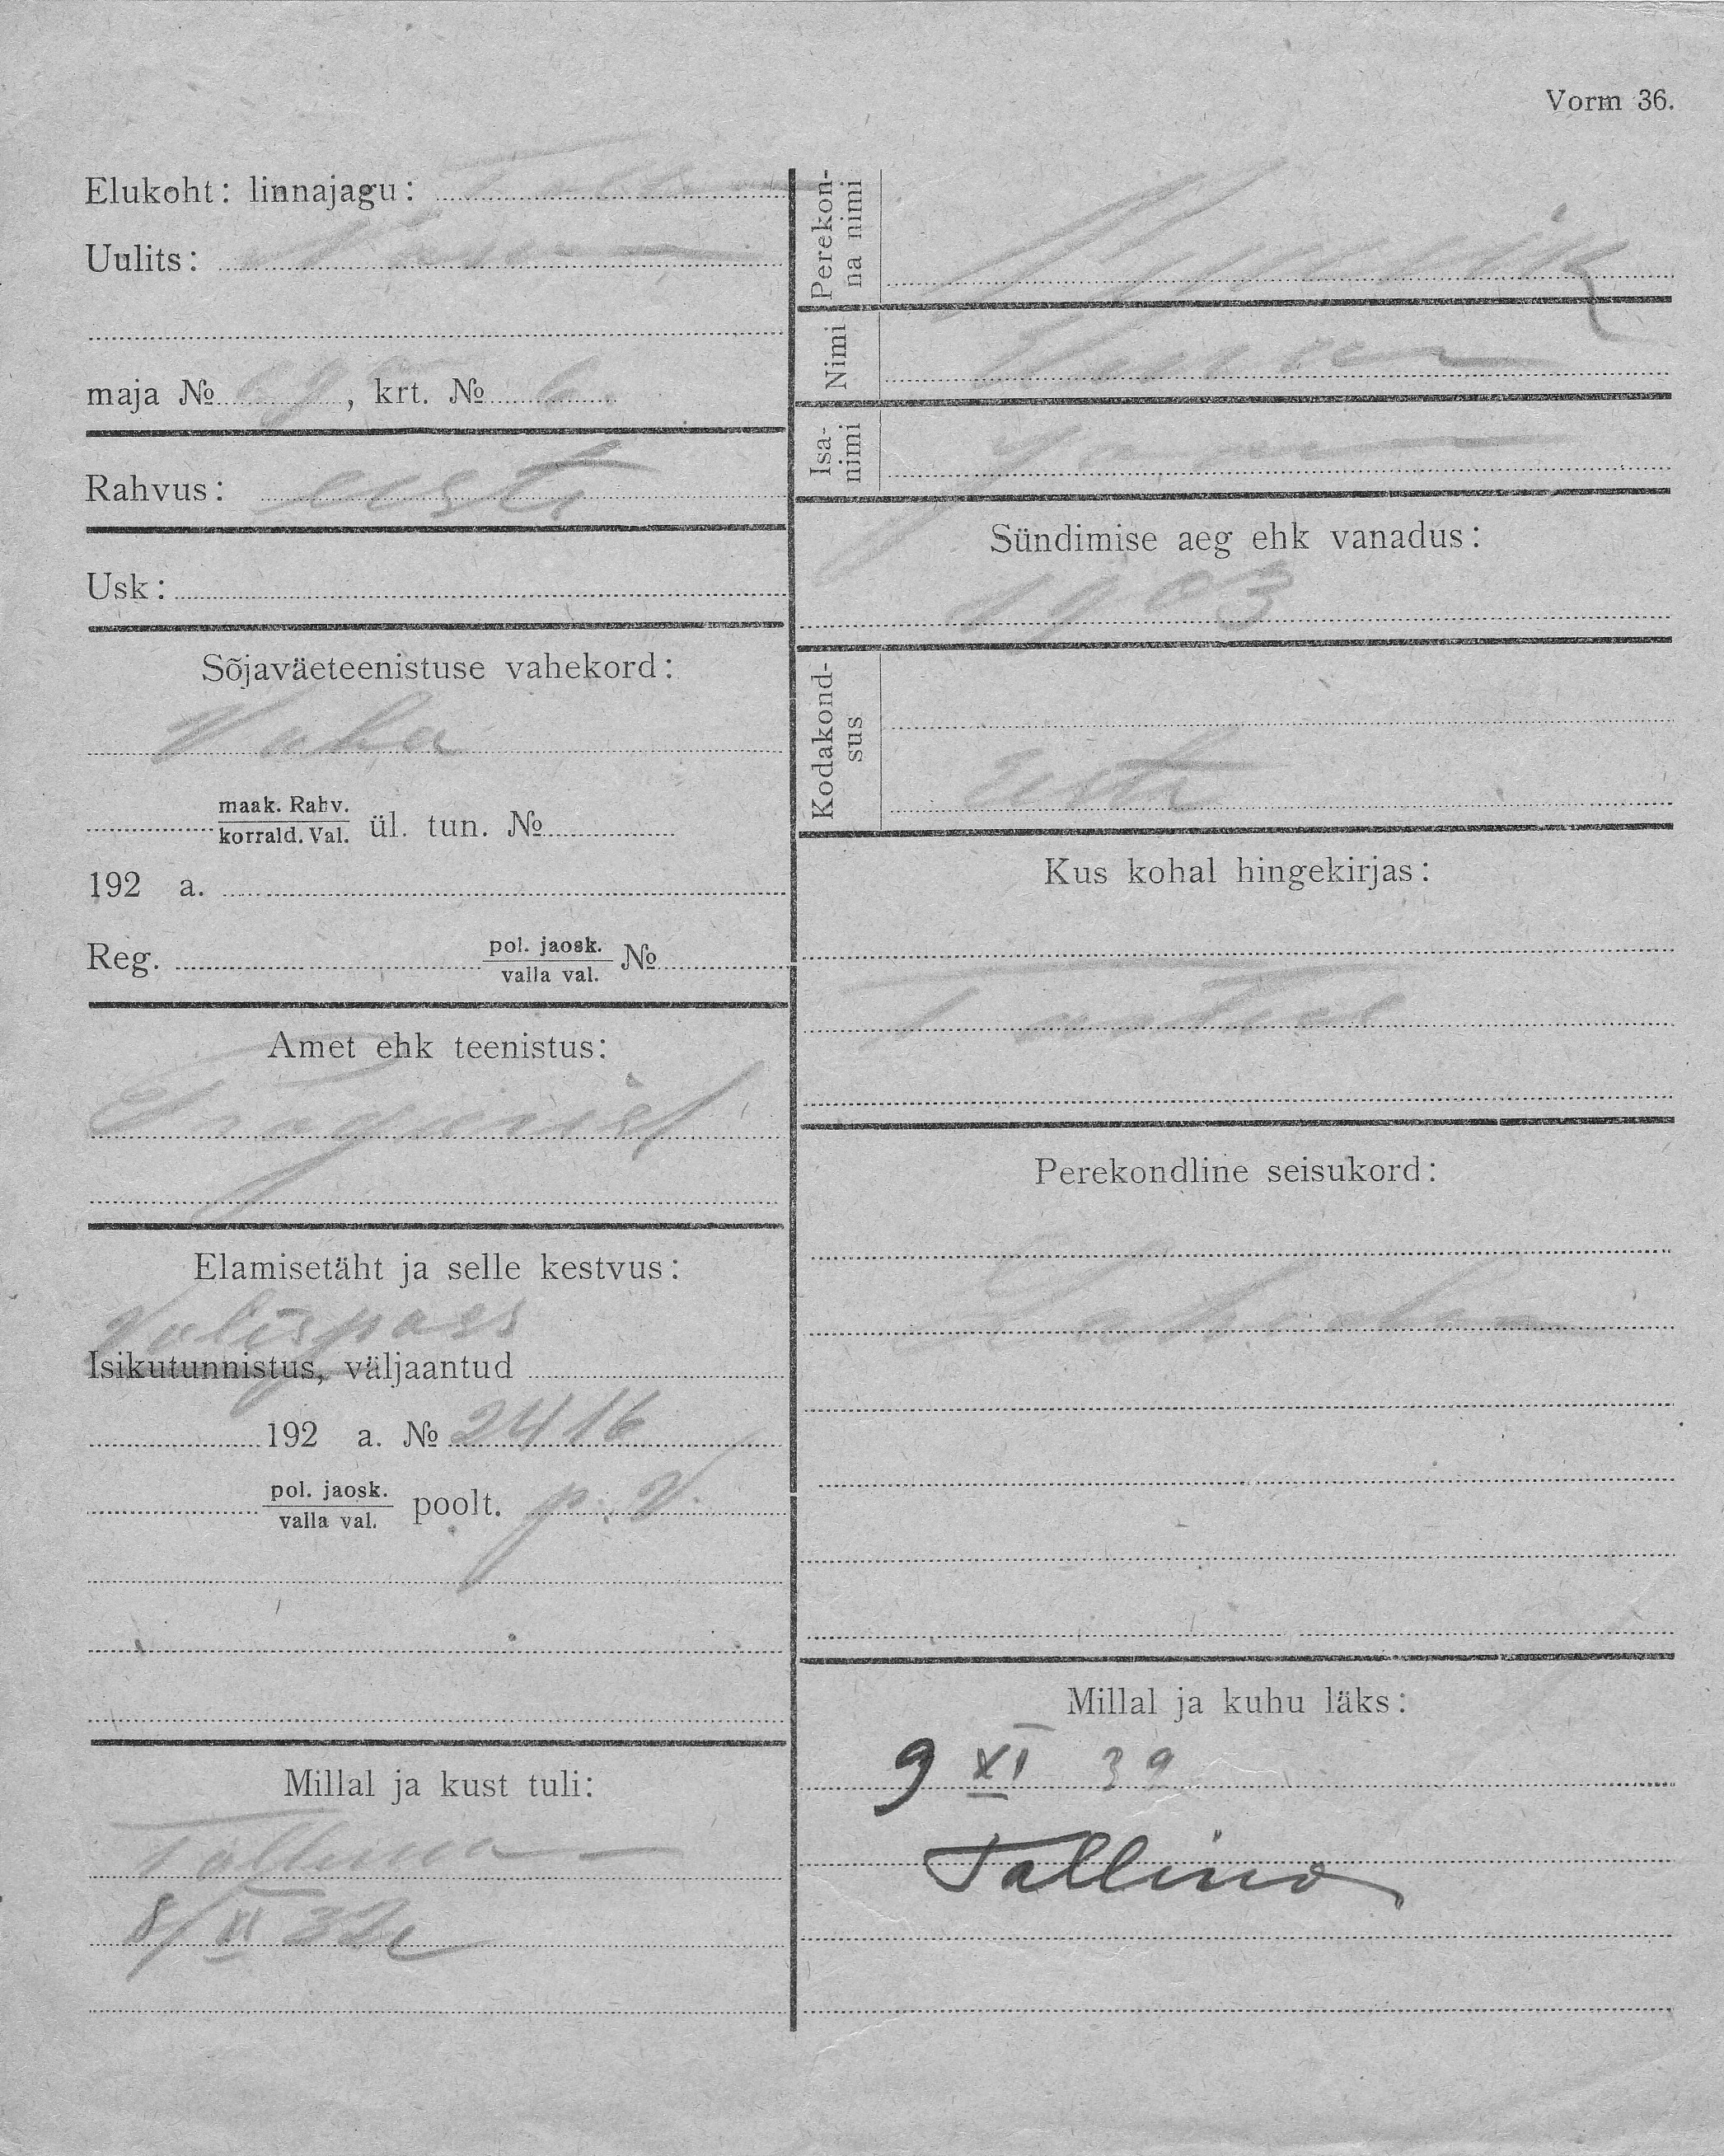 Vorm 36.
Elukoht: linnajagu:
Uulits:
maja № 69, krt. № 6
Rahvus: eesti
Usk:
Sõjaväeteenistuse vahekord:
Vaba
maak. Rahv.
korrald. Val. ül. tun. №
192 a.
Reg. pol. jaosk.
valla val. №
Amet ehk teenistus:
Elamisetäht ja selle kestvus:
Välispass
Isikutunnistus, väljaantud
192 a. № 2416
pol. jaosk.
valla val. poolt. p. V.
Millal ja kust tuli:
Tallinna
8/XI 32
Perekon-
na nimi
Nimi
Isa-
nimi
Sündimise aeg ehk vanadus:
1903
Kodakond-
sus
Eesti
Kus kohal hingekirjas:
Perekondline seisukord:
Millal ja kuhu läks:
9 XI 39
Tallinna